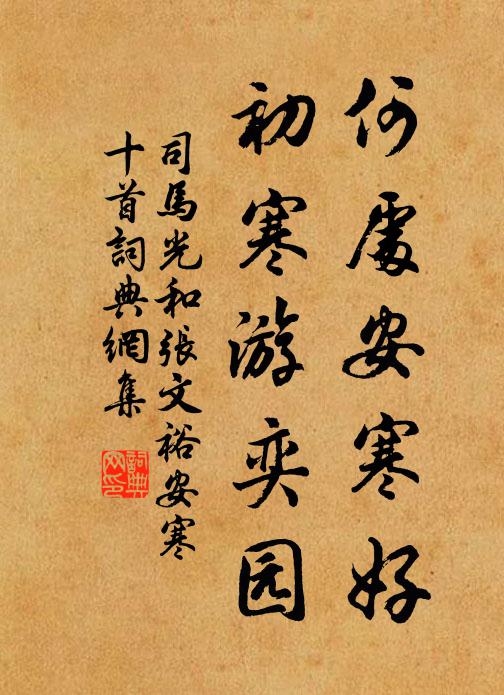 何處安寒好
初寒游奕园
司馬光和張文裕安寒
十首詞典網集
詞典網印